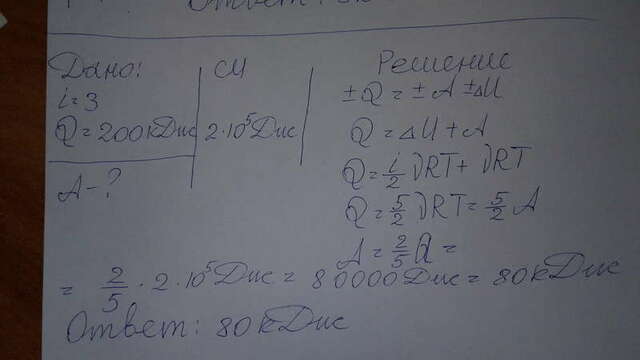 Ответ:
Дано:
i=3
Q=200кДж
A-?
СИ
2·10⁵Дж
Решение
±Q=±A±ΔU
Q=ΔU+A
Q=i/2 νRT+νRT
Q=5/2 νRT=5/2 A
A=2/5 Q=
=2/5·2·10⁵Дж=80000Дж=80кДж
Ответ: 80кДж